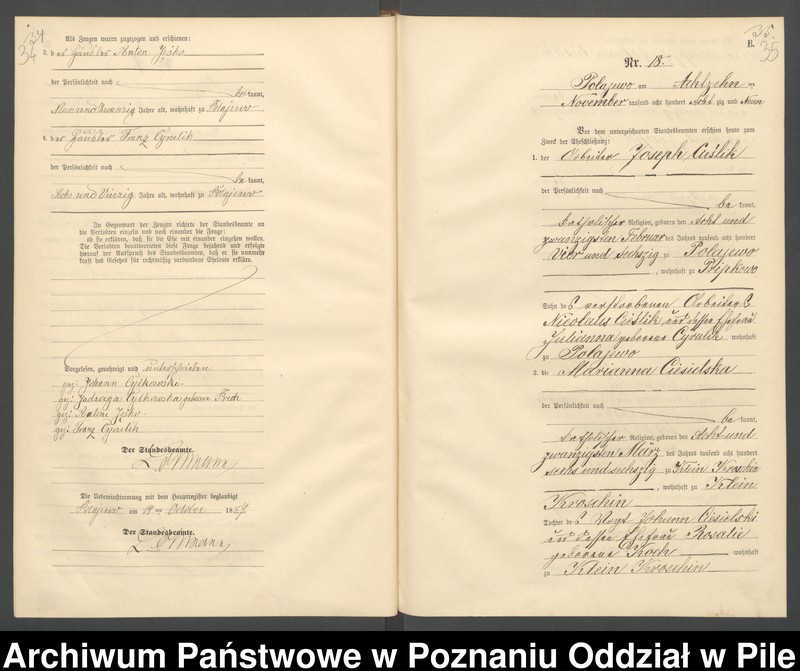 34
34
Als Zeugen waren zugezogen und erschienen:
3. der Händler Anton
der Persönlichkeit nach
be kannt,
Jahre alt, wohnhaft zu Polajewo
4. der Händler Franz Cyrulik
der Persönlichkeit nach
be kannt,
Acht und Vierzig Jahre alt, wohnhaft zu Polajewo
In Gegenwart der Zeugen richtete der Standesbeamte an
die Verlobten einzeln und nach einander die Frage:
ob sie erklären, daß sie die Ehe mit einander eingehen wollen.
Die Verlobten beantworteten diese Frage bejahend und erfolgte
hierauf der Ausspruch des Standesbeamten, daß er sie nunmehr
kraft des Gesetzes für rechtmäßig verbundene Eheleute erkläre.
Vorgelesen, genehmigt und unterschrieben
gez: Johann Cylkowski
gez: Jadwiga Cylkowska geborene
gez:
gez: Franz Cyrulik
Der Standesbeamte.
Die Uebereinstimmung mit dem Hauptregister beglaubigt
Polajewo am 19ten October 1889
Der Standesbeamte.
35.
B.
35
Nr. 18.
Polajewo am Achtzehn ten
November tausend acht hundert Acht zig und Neun
Vor dem unterzeichneten Standesbeamten erschien heute zum
Zweck der Eheschließung:
1. der Arbeiter Joseph Cieślik
der Persönlichkeit nach
be kannt,
katholischer Religion, geboren den Acht und
zwanzigsten Februar des Jahres tausend acht hundert
Vier und sechszig zu Polajewo
, wohnhaft zu Pripkowo
Sohn des verstorbenen Arbeiters
Nicolaus Cieślik und dessen Ehefrau
Julianna geborene Cyrulik wohnhaft
zu Polajewo
2. die Marianna Ciesielska
der Persönlichkeit nach
be kannt,
katholischer Religion, geboren den Acht und
zwanzigsten März des Jahres tausend acht hundert
sechs und sechszig zu Klein Kroschin
, wohnhaft zu Klein
Kroschin
Tochter des Vogt Johann Ciesielski
und dessen Ehefrau Rosalie
geborene Koch wohnhaft
zu Klein Kroschin
Archiwum Państwowe w Poznaniu Oddział w Pile